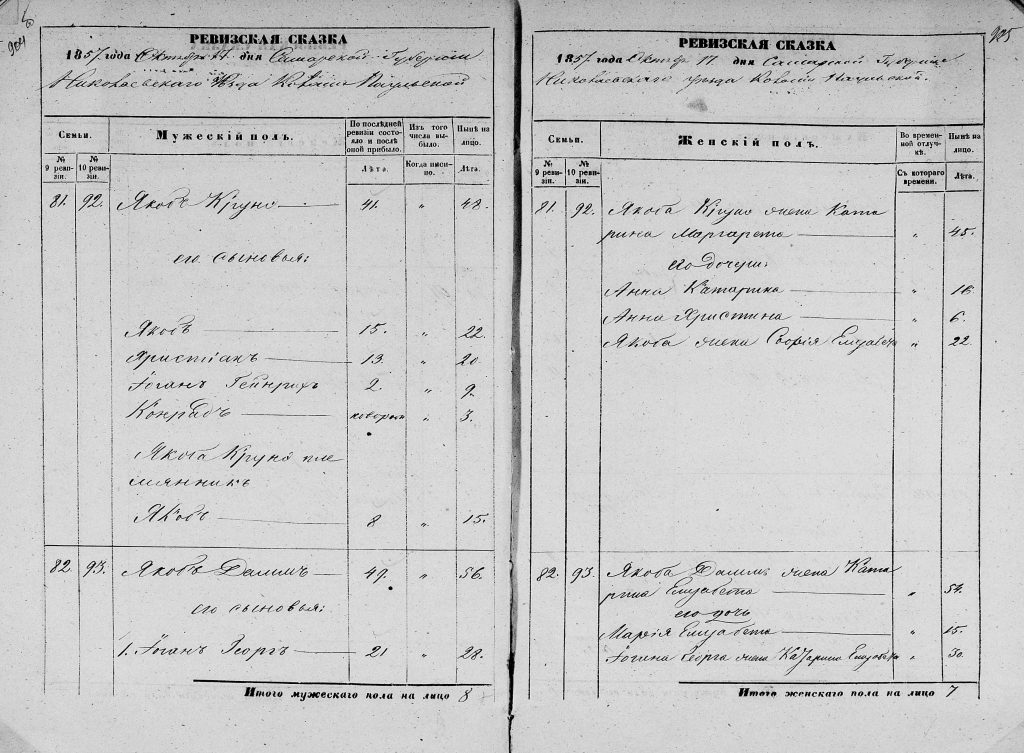 904
РЕВИЗСКАЯ СКАЗКА
1857. года Октября 17 дня Самарской Губернии
Николаевскаго Уезда Колонии
Семьи.
Мужескій полъ.
По послѣдней ревизіи состояло и послѣ оной прибыло.
Изъ того числа выбыло.
Нынѣ на лицо.
№ 9 ревизіи.
№ 10 ревизіи.
Лѣта.
Когда именно.
Лѣта.
81. 92. Якобъ Круно 41. „ 48.
его сыновья:
Якобъ 15. „ 22.
Христіанъ 13. „ 20.
Іоганъ Гейнрихъ 2. „ 9.
Конрадъ „ 3.
Якоба Круно пле
мянникъ
Якобъ 8 „ 15.
82. 93. Якобъ 49. „ 56.
его сыновья:
1. Іоганъ Георгъ 21 „ 28.
Итого мужескаго пола на лицо 8
905
РЕВИЗСКАЯ СКАЗКА
1857. года Октября 17 дня Самарской Губерніи
Николаевскаго уезда Колоніи
Семьи.
Женскій полъ.
Во временной отлучкѣ.
Нынѣ на лицо.
№ 9 ревизіи.
№ 10 ревизіи.
Съ котораго времени.
Лѣта.
81. 92. Якоба Круно жена Ката
рина Маргарета „ 45.
его дочери:
Анна Катарина „ 16.
Анна Христина „ 6.
Якоба жена Софія Елизабета „ 22.
82. 93. Якоба жена Ката
рина Елизабета „ 54.
его дочь
Марія Елизабета „ 15.
Іогана Георга жена Катарина Елизабета „ 30.
Итого женскаго пола на лицо 7